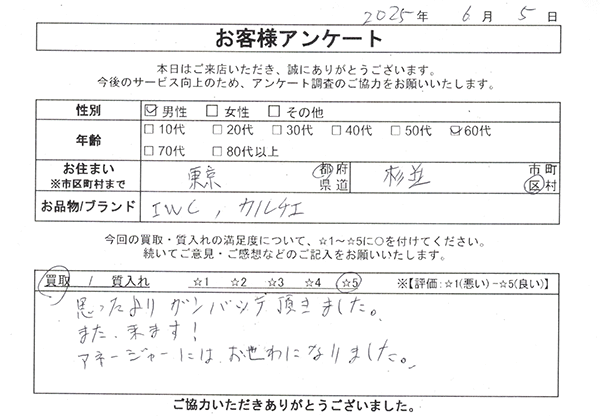 2025年 6月 5日
お客様アンケート
本日はご来店いただき、誠にありがとうございます。
今後のサービス向上のため、アンケート調査のご協力をお願いいたします。
性別 ☑男性 □女性 □その他
年齢 □10代 □20代 □30代 □40代 □50代 ☑60代
□70代 □80代以上
お住まい ※市区町村まで 東京 都府県道 杉並 市町区村
お品物/ブランド IWC, カルチエ
今回の買取・質入れの満足度について、☆1～☆5に○を付けてください。
続いてご意見・ご感想などのご記入をお願いいたします。
買取 / 質入れ ☆1 ☆2 ☆3 ☆4 ☆5 ※【評価:☆1(悪い)-☆5(良い)】
思ったよりガンバッテ頂きました。
また、来ます!
マネージャーには、お世わになりました。
ご協力いただきありがとうございました。